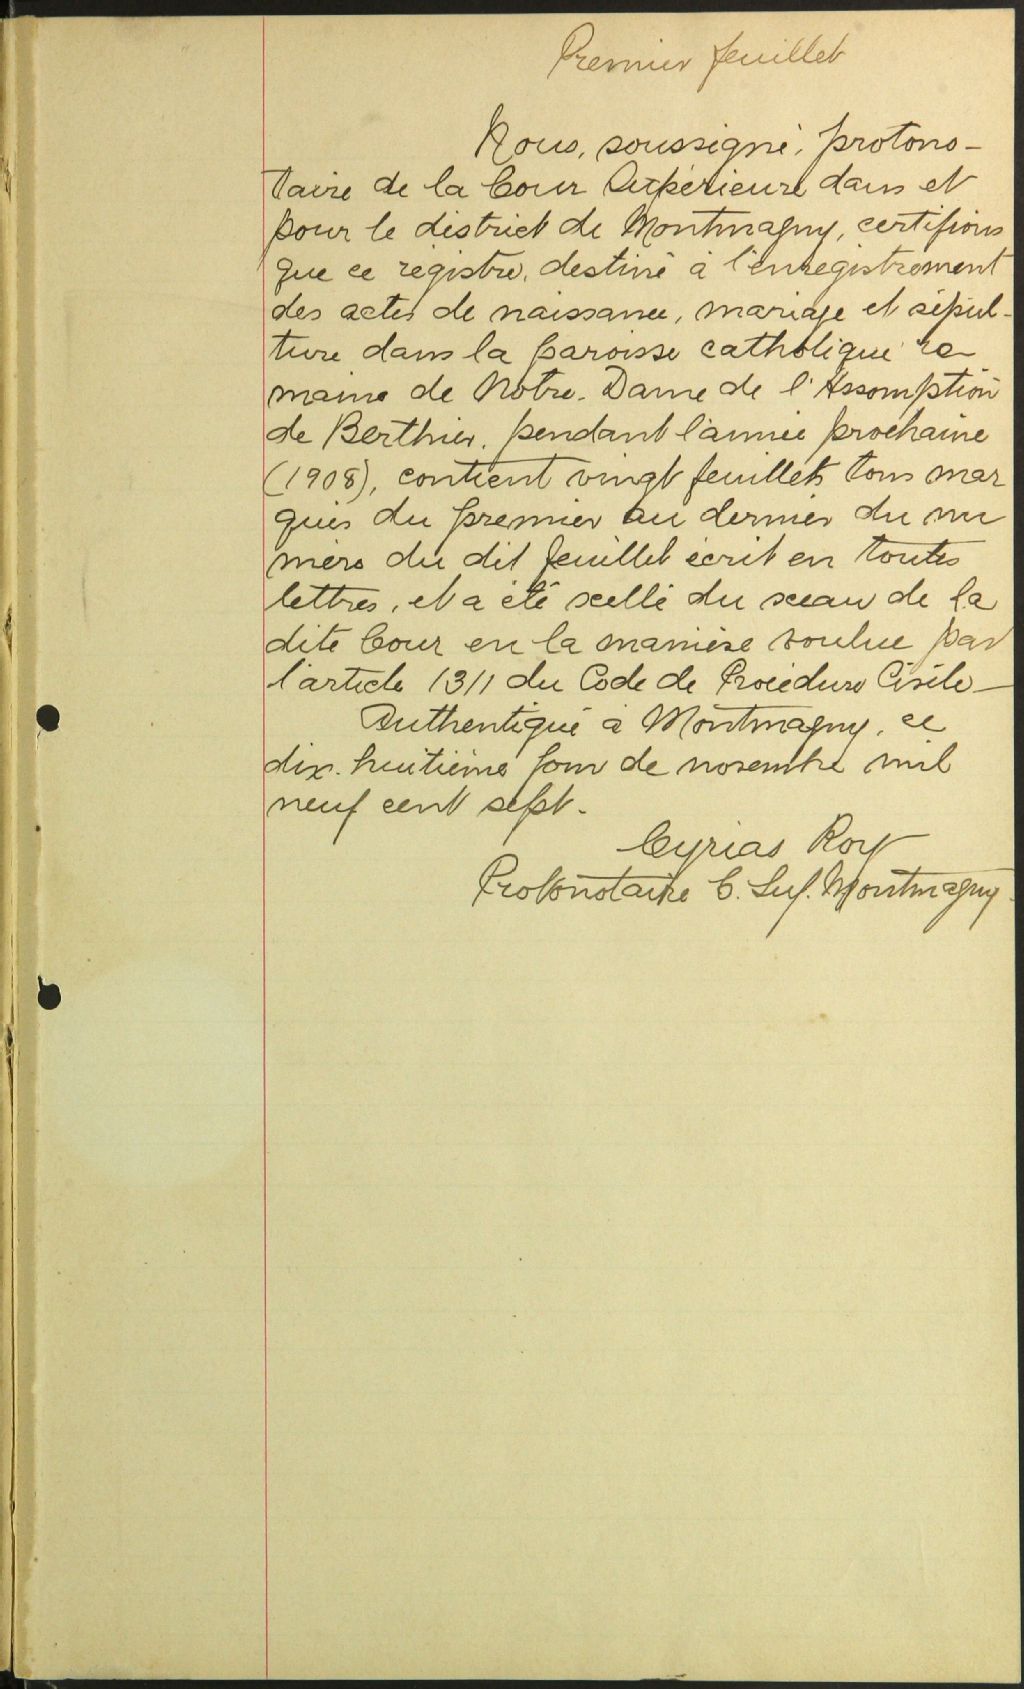 Premier feuillet
Nous, soussigné, protono-
taire de la Cour Supérieure dans et
pour le district de Montmagny, certifions
que ce régistre, destiné à l'enregistrement
des actes de naissance, mariage et sépul-
ture dans la paroisse catholique ro
maine de Notre-Dame de l'Assomption
de Berthier, pendant l'année prochaine
(1908), contient vingt feuillets tous mar
qués du premier au dernier du nu
méro du dit feuillet écrit en toutes
lettres, et a été scellé du sceau de la
dite Cour en la manière voulue par
l'article 1311 du Code de Procédure Civile -
Authentiqué à Montmagny, ce
dix-huitième jour de novembre mil
neuf cent sept.
Cyrias Roy
Protonotaire C. Sup. Montmagny.